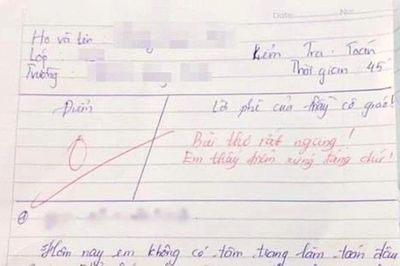 Date No
Họ và tên
Lớp:
Trường
Kiểm Tra Toán
Thời gian 45'
Điểm
Lời phê của thầy cô giáo!
0
Bài thơ rất ngung!
Em thấy điểm xứng đáng chứ!
Hôm nay em không có tâm trạng làm toán đâu